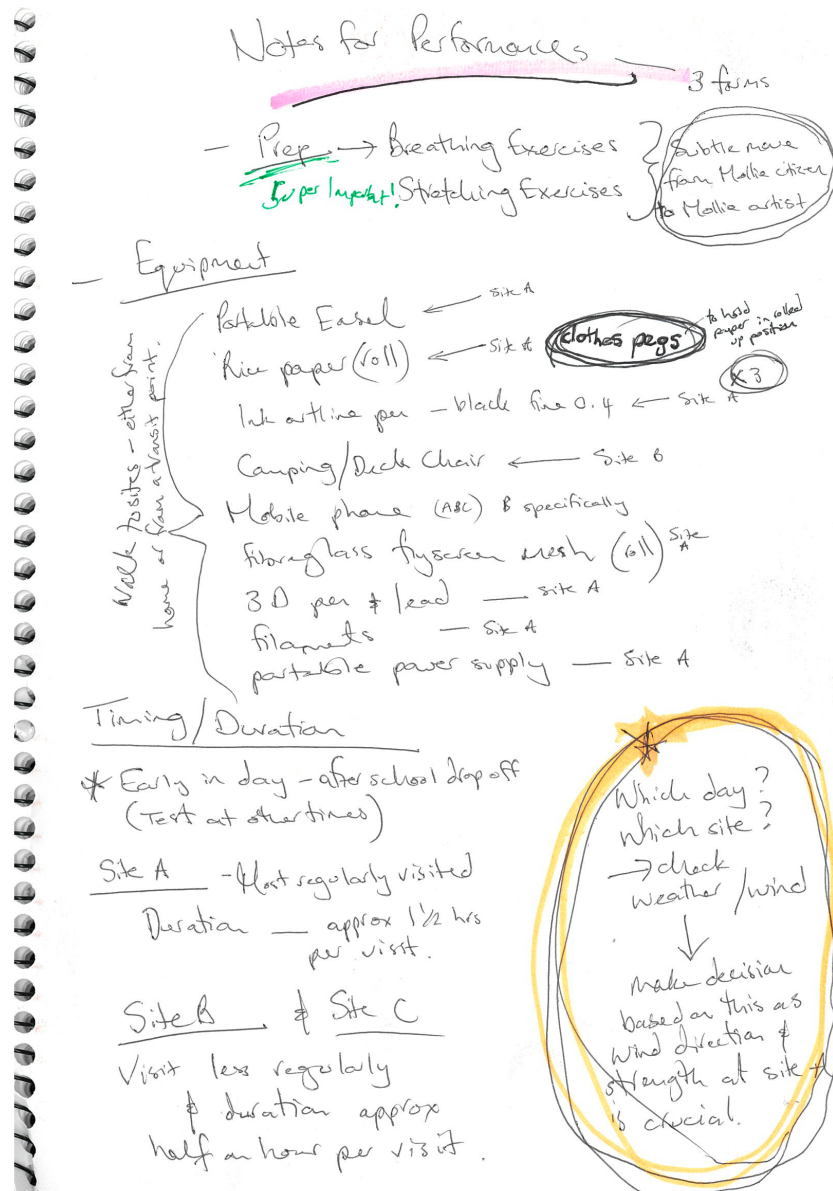 Notes for Performances —
3 forms
- Prep → Breathing Exercises
Super Important! Stretching Exercises
Subtle move
from Mollie citizen
to Mollie artist
- Equipment
Walk to sites - either from
home or from a transit point.
Portable Easel ← site A
Rice paper (roll) ← site A
clothes pegs
to hold
paper in rolled
up position
x3
Ink artline pen - black fine 0.4 ← site A
Camping/Deck Chair ← Site B
Mobile phone (ABC) B specifically
fibreglass flyscreen mesh (roll) site A
3D pen & lead — site A
filaments — site A
portable power supply — site A
Timing/Duration
* Early in day - after school drop off
(Test at other times)
Site A - Most regularly visited
Duration — approx 1 1/2 hrs
per visit.
Site B & Site C
Visit less regularly
& duration approx
half an hour per visit.
Which day?
Which site?
→ check
weather/wind
↓
make decision
based on this as
wind direction &
strength at site A
is crucial.